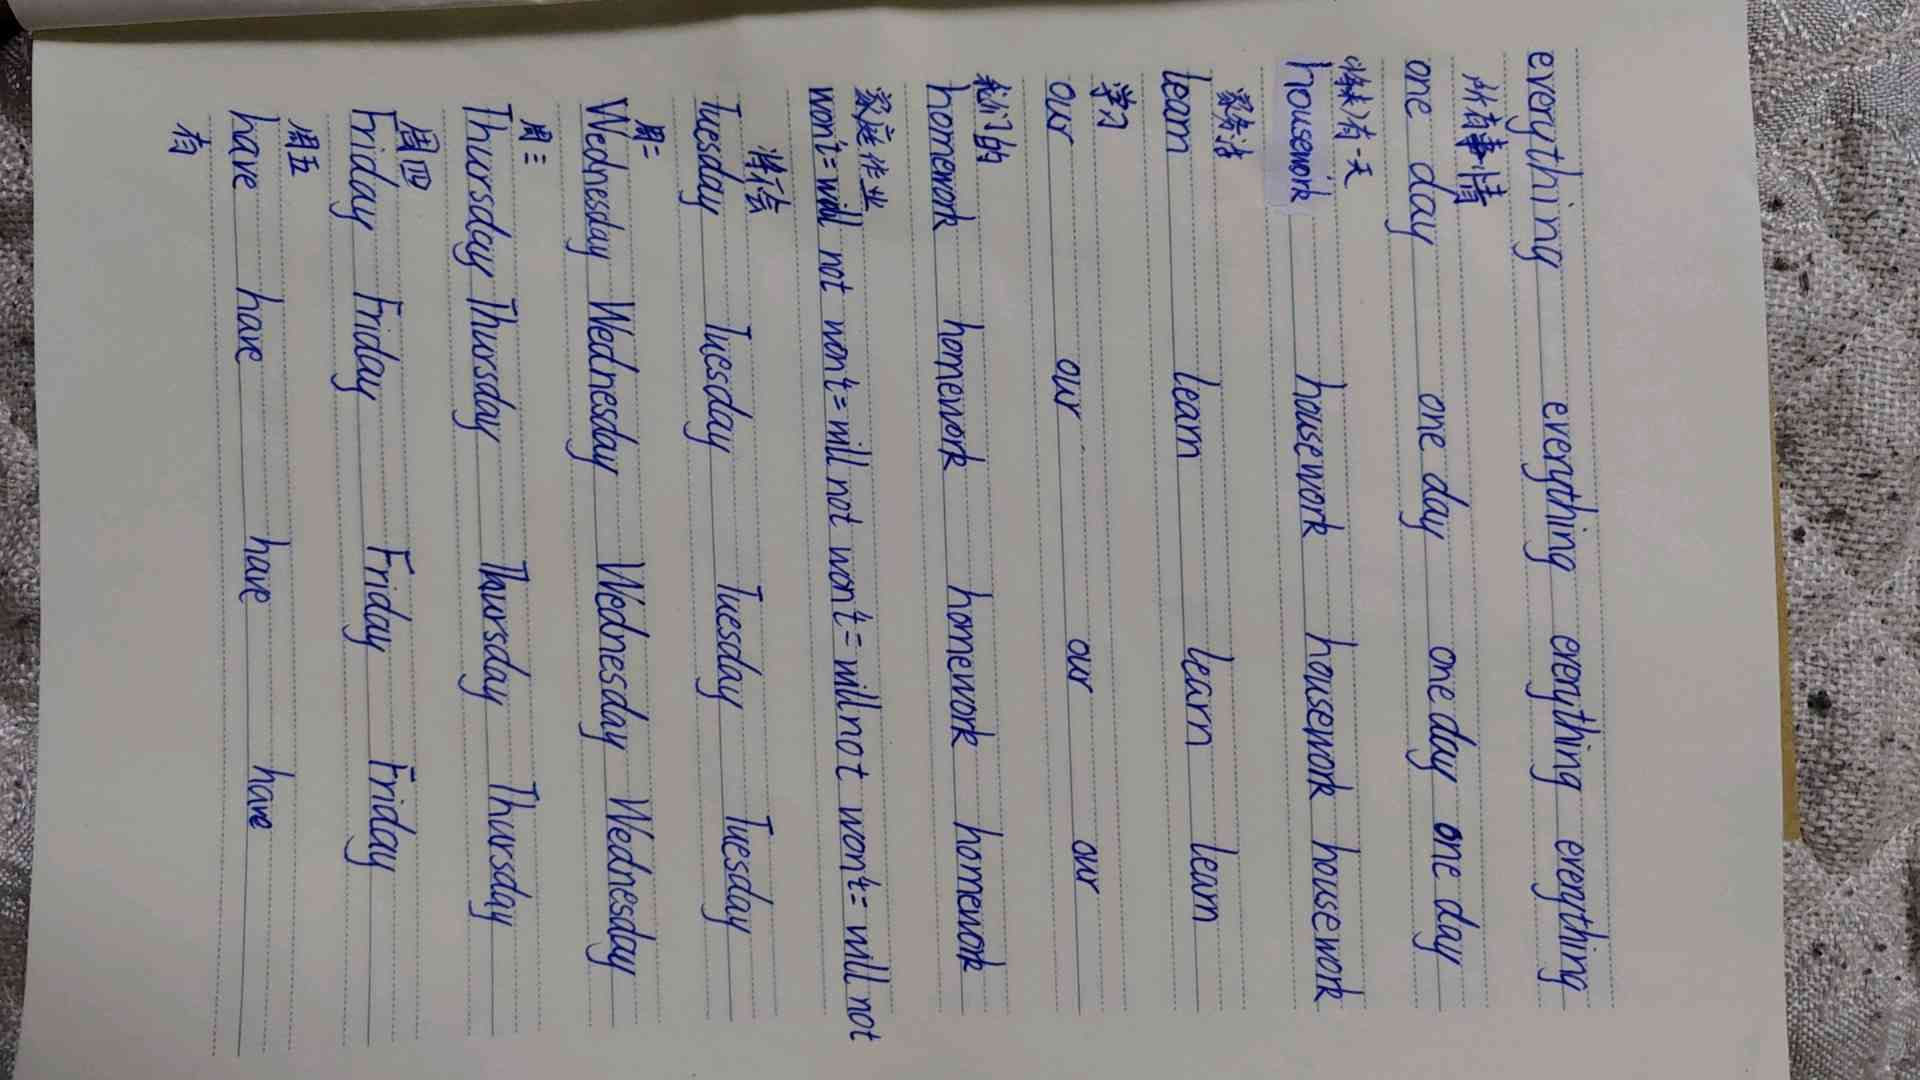 everything everything everything everything
所有事情
one day one day one day one day
将来有一天
housework housework housework housework
家务活
learn learn learn learn
学习
our our our our
我们的
homework homework homework homework
家庭作业
won't=will not won't=will not won't=will not won't=will not
将不会
Tuesday Tuesday Tuesday Tuesday
周二
Wednesday Wednesday Wednesday Wednesday
周三
Thursday Thursday Thursday Thursday
周四
Friday Friday Friday Friday
周五
have have have have
有